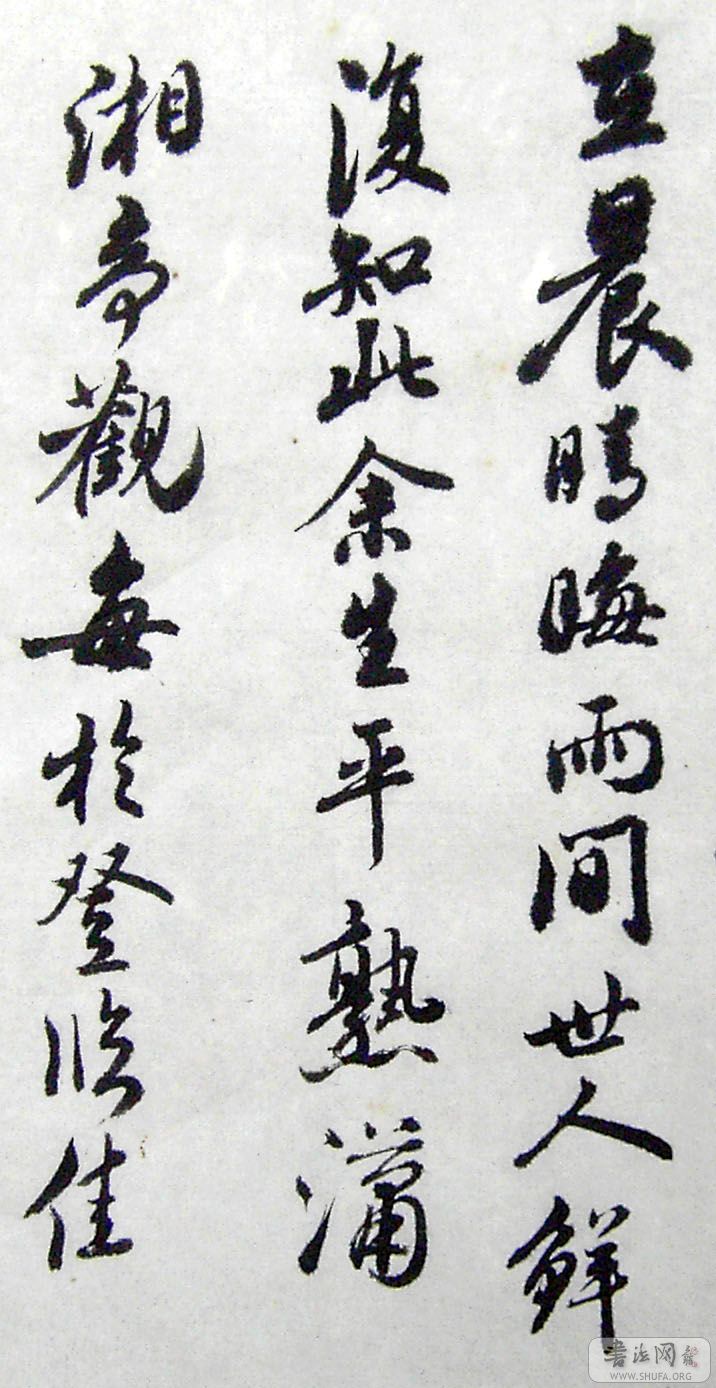 在晨晴晦雨間世人鮮
復知此余生平熟瀟
湘奇觀每於登臨佳
書法网
WWW.SHUFA.ORG